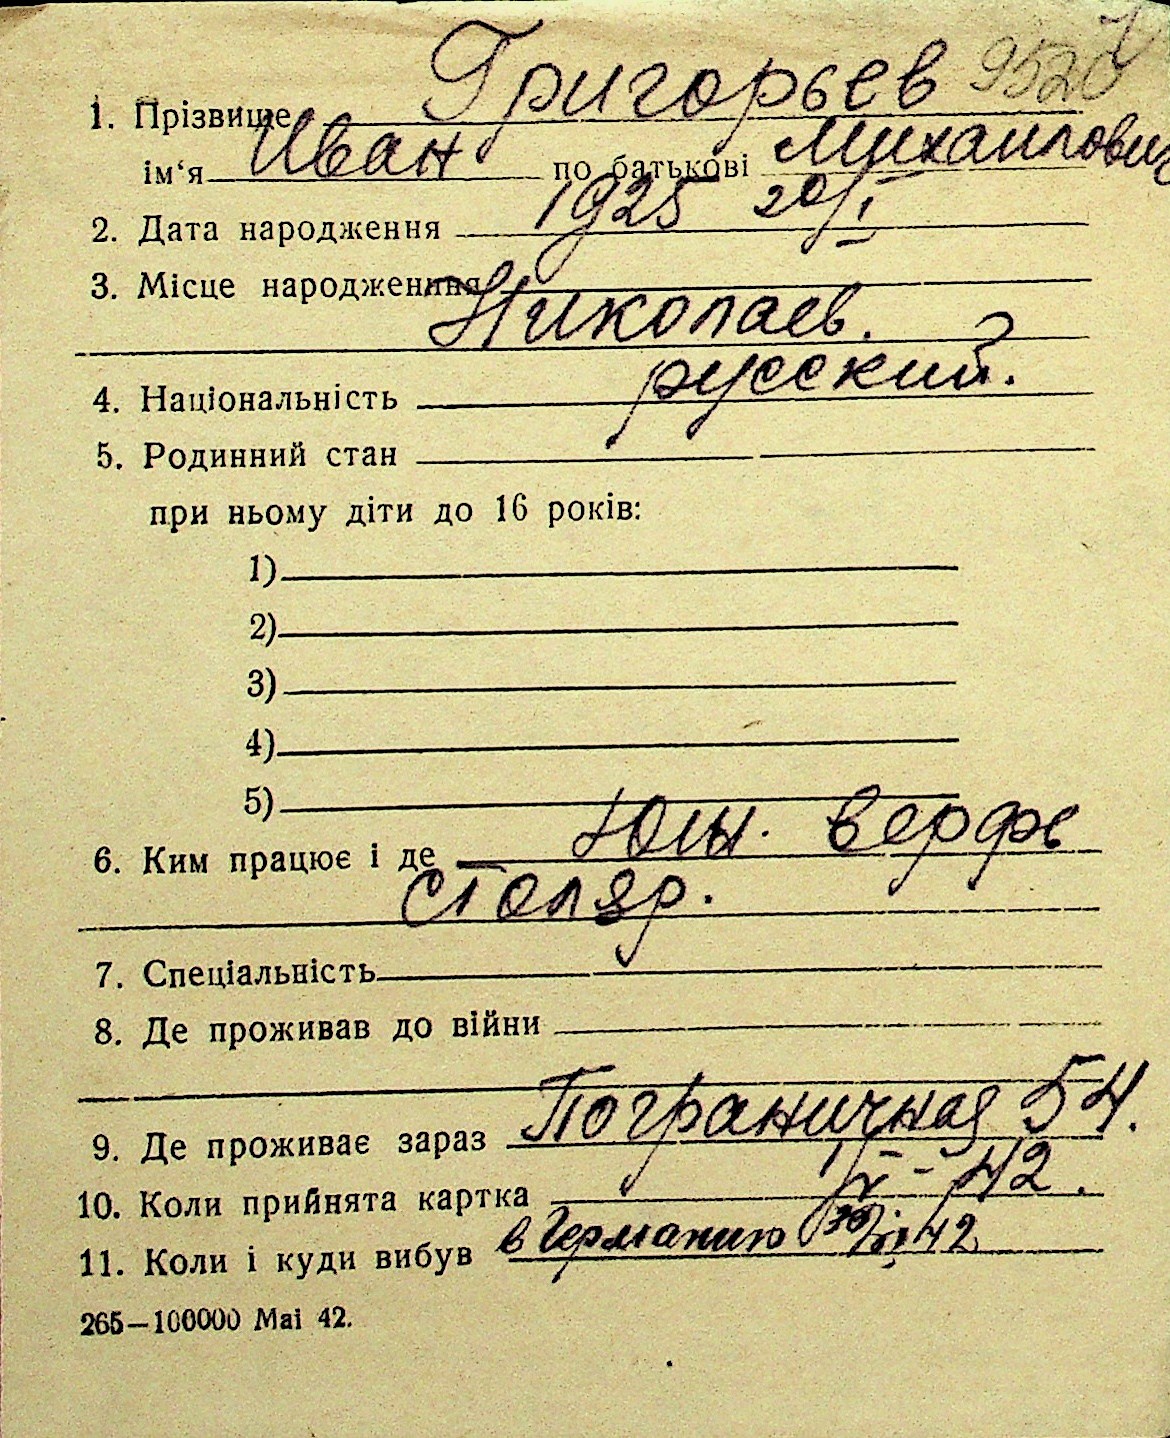 9520
1. Прізвище Григорьев
ім‘я Иван по батькові Михаилович
2. Дата народження 1925 20/I
3. Місце народження Николаев.
4. Національність русский.
5. Родинний стан
при ньому діти до 16 років:
1)
2)
3)
4)
5)
6. Ким працює і де Южн. верфь
столяр.
7. Спеціальність
8. Де проживав до війни
9. Де проживає зараз Пограничная 54.
10. Коли прийнята картка 42.
11. Коли і куди вибув в Германию 42
265—100000 Mai 42.